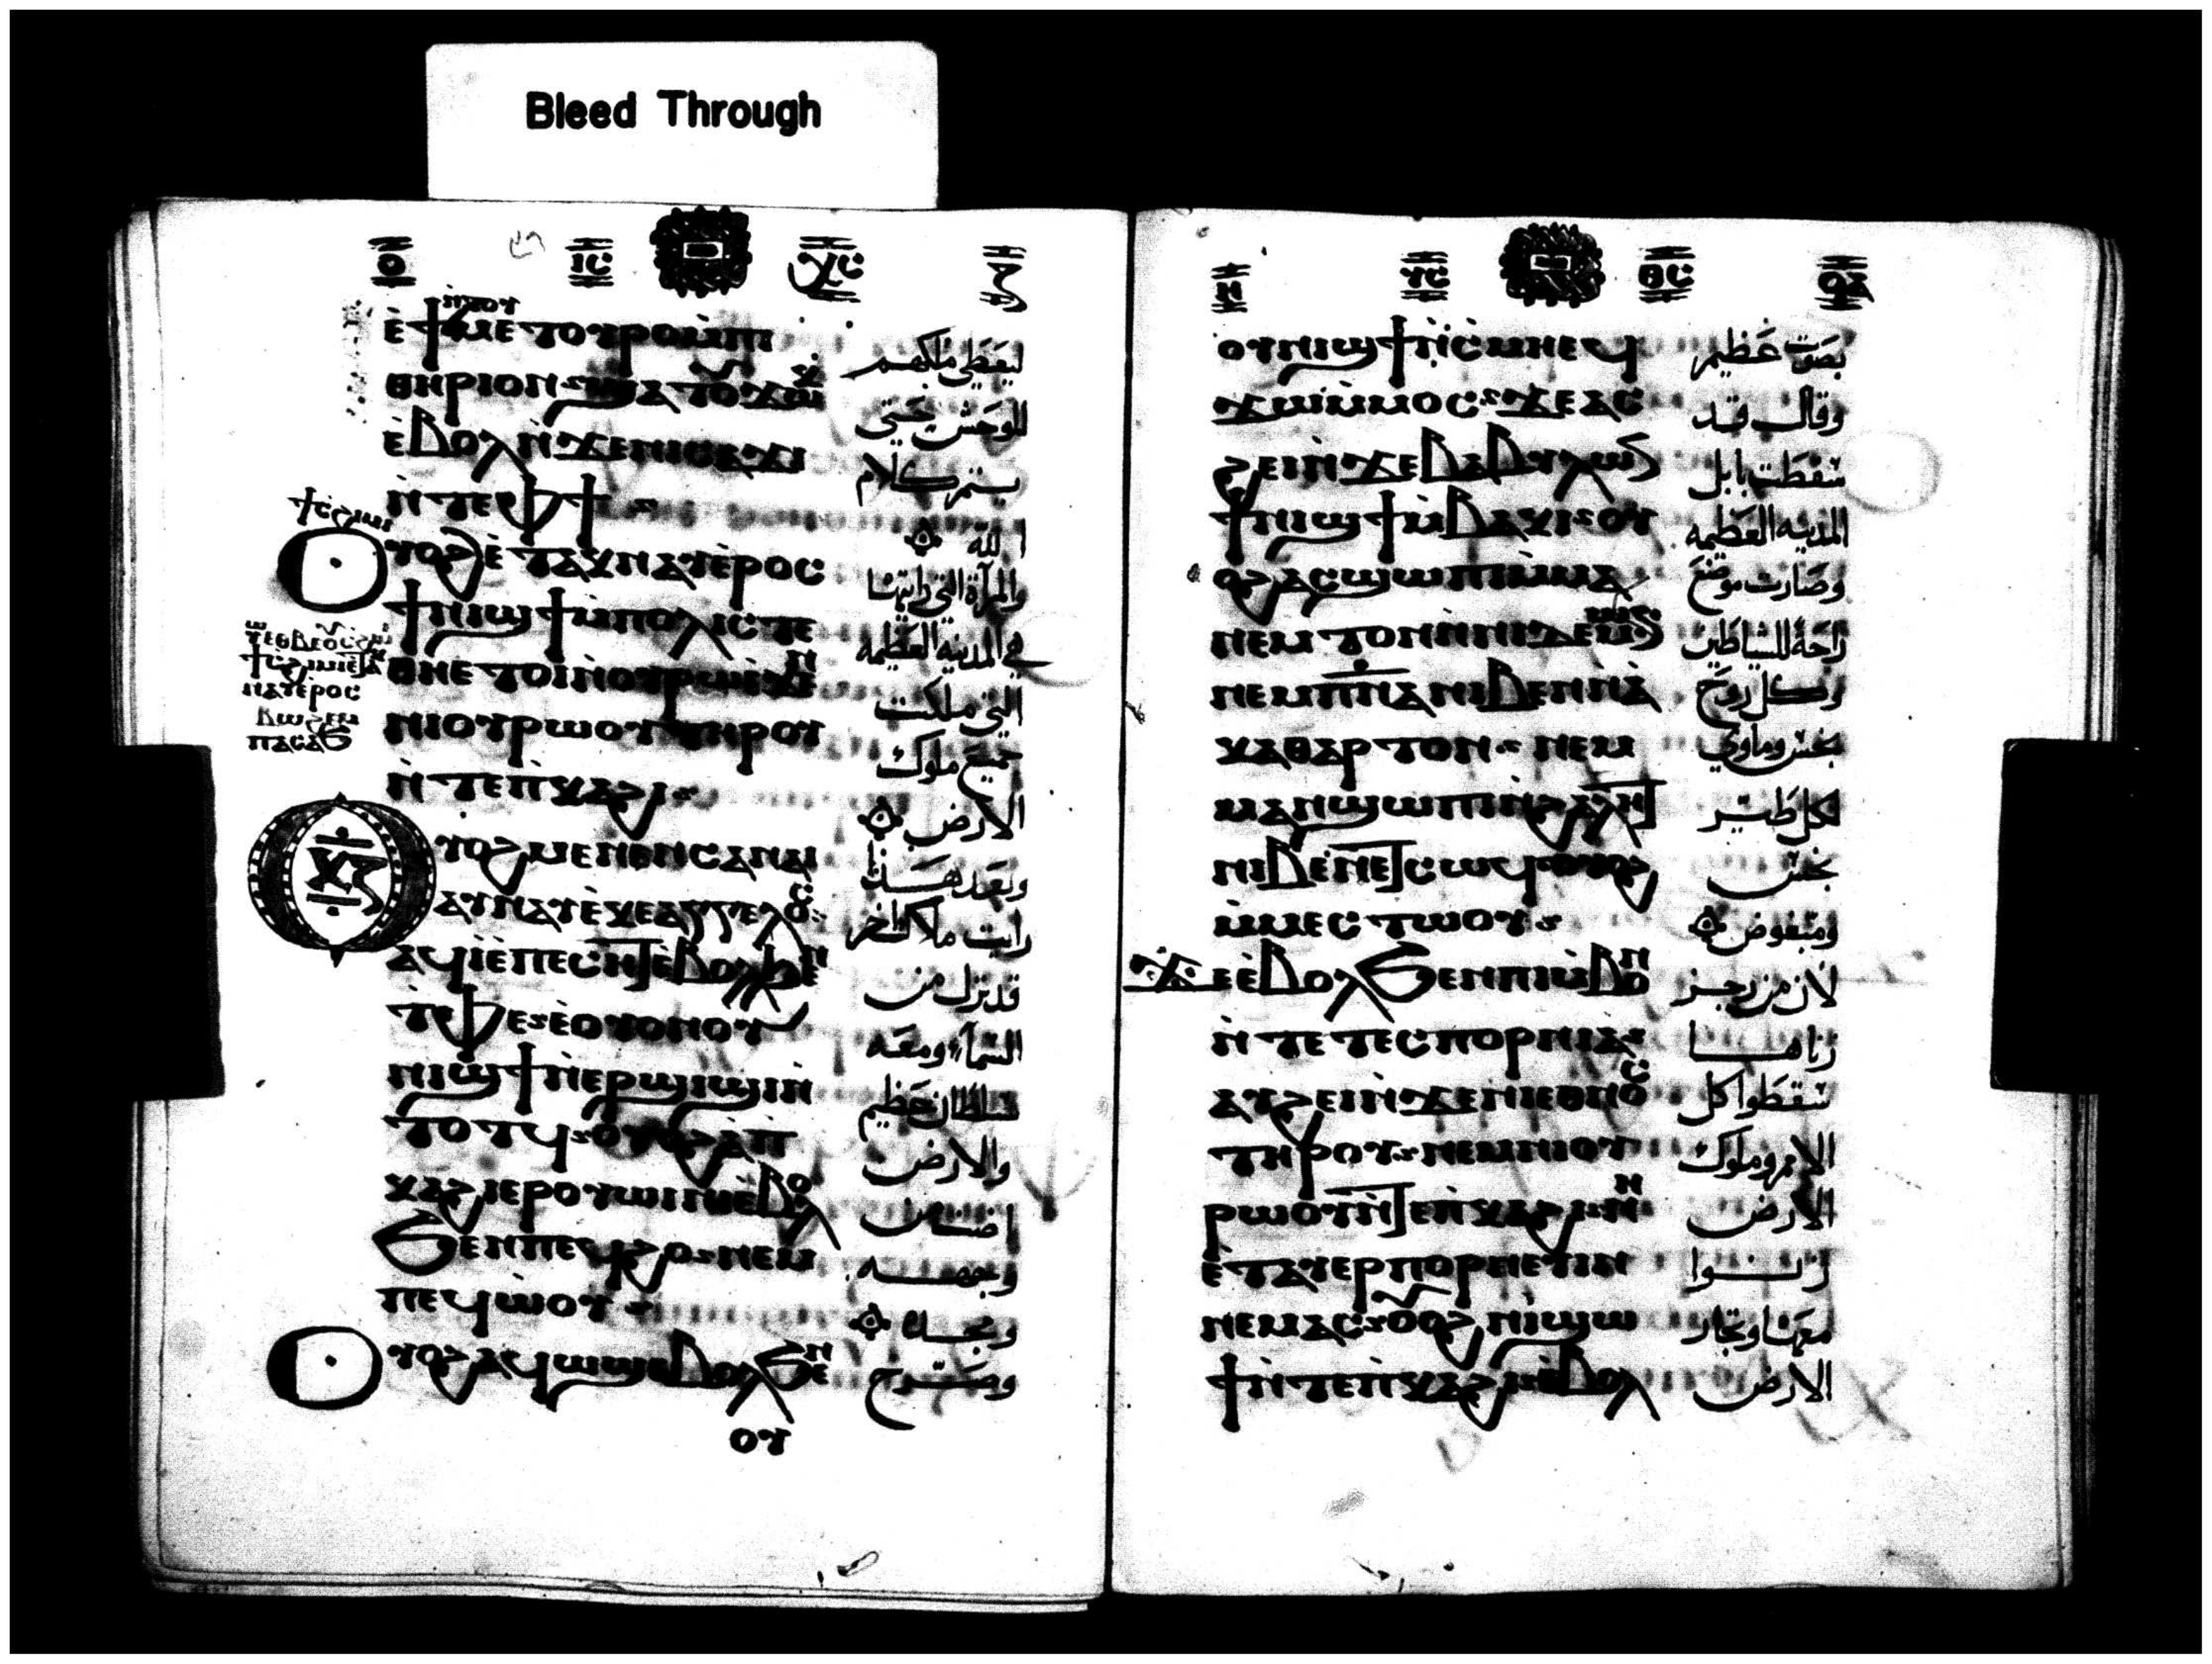 Bleed Through
ⲟ ⲓⲥ ⲭⲥ ⲍ
ⲛ̀ⲧⲟⲩ
ليعطي ملكهم
ⲑⲏⲣⲓⲟⲛ
للوحش حتي
ⲉ̀ⲃⲟⲗ ⲛ̀ϫⲉⲛⲓⲥⲁϫⲓ
يتم كلام
ⲛ̀ⲧⲉⲫϯ
الله
ⲟⲩⲟϩ ⲉ̀ⲧⲁⲩⲛⲁⲩⲉ̀ⲣⲟⲥ
والمرآة التي رايتها
ϯⲛⲓϣϯ ⲙ̀ⲡⲟⲗⲓⲥ ⲧⲉ
هي المدينه العظيمه
ⲑⲏⲉⲧⲟⲓ ⲛ̀ⲟⲩⲣⲱ ⲉ̀ϫⲉⲛ
التي ملكت
ⲛⲓⲟⲩⲣⲱⲟⲩ ⲧⲏⲣⲟⲩ
جميع ملوك
ⲛ̀ⲧⲉⲡⲕⲁϩⲓ
الارض
ⲟⲩⲟϩ ⲙⲉⲛⲉⲛⲥⲁⲛⲁⲓ
وبعد هذا
ⲁⲩⲛⲁⲩ ⲉ̀ⲕⲉⲁⲅⲅⲉⲗⲟⲥ
رايت ملاكا اخر
ⲁϥⲓ̀ ⲉ̀ⲡⲉⲥⲏⲧ ⲉ̀ⲃⲟⲗϧⲉⲛ
قد نزل من
ⲧⲫⲉ ⲉ̀ⲟⲩⲟⲛ ⲟⲩ
السمآء ومعه
ⲛⲓϣϯ ⲛ̀ⲉⲣϣⲓϣⲓ ⲛ̀
سلطان عظيم
ⲧⲟⲧϥ ⲟⲩⲟϩ ⲁ̀ⲡ
والارض
ⲕⲁϩⲓ ⲉⲣⲟⲩⲱⲓⲛⲓ ⲉ̀ⲃⲟⲗ
اضات من
ϧⲉⲛⲡⲉϥϩⲟ ⲛⲉⲙ
وجهه
ⲡⲉϥⲱ̀ⲟⲩ
ومجده
ⲟⲩⲟϩ ⲁϥⲱϣ ⲉ̀ⲃⲟⲗ ϧⲉⲛ
وصرخ
ⲟⲩ
ⲛ ⲩⲥ ⲑⲥ ⲟⲁ
ⲟⲩⲛⲓϣϯ ⲛ̀ⲥⲙⲏ ⲉϥ
بصوت عظيم
ϫⲱ ⲙ̀ⲙⲟⲥ ϫⲉ ⲁⲥ
وقال قد
ϩⲉⲓ ⲛ̀ϫⲉⲃⲁⲃⲩⲗⲱⲛ
سقطت بابل
ϯⲛⲓϣϯ ⲙ̀ⲃⲁⲕⲓ ⲟⲩ
المدينه العظيمه
ⲟϩ ⲁⲥϣⲱⲡⲓ ⲙ̀ⲙⲁ
وصارت موضع
ⲛⲉⲙⲧⲟⲛ ⲛ̀ⲛⲓⲇⲉⲙⲱⲛ
راحة للشياطين
ⲛⲉⲙ ⲡ̅ⲛ̅ⲁ ⲛⲓⲃⲉⲛ ⲛⲁ
وكل روح
ⲕⲁⲑⲁⲣⲧⲟⲛ ⲛⲉⲙ
نجس وماوي
ⲙⲁⲛϣⲱⲡⲓ ⲛ̀ϩⲁⲗⲏⲧ
لكل طير
ⲛⲓⲃⲉⲛ ⲉⲧⲥⲱϥ ⲟⲩⲟϩ
نجس
ⲙ̀ⲙⲉⲥⲧⲱⲟⲩ
ومبغوض
ϫⲉ ⲉ̀ⲃⲟⲗϧⲉⲛⲡⲓⲙ̀ⲃⲟⲛ
لان من رجز
ⲛ̀ⲧⲉⲧⲉⲥⲡⲟⲣⲛⲓⲁ
زناها
ⲁⲩϩⲉⲓ ⲛ̀ϫⲉⲛⲓⲉⲑⲛⲟⲥ
سقطوا كل
ⲧⲏⲣⲟⲩ ⲛⲉⲙⲛⲓⲟⲩ
الامم وملوك
ⲣⲱⲟⲩ ⲛ̀ⲧⲉⲡ̀ⲕⲁϩⲓ ⲛⲏ
الارض
ⲉ̀ⲧⲁⲩⲉⲣⲡⲟⲣⲛⲉⲩⲓⲛ
زنوا
ⲛⲉⲙⲁⲥ ⲟⲩⲟϩ ⲛⲓϣⲱ
معها وتجار
ϯ ⲛ̀ⲧⲉⲡ̀ⲕⲁϩⲓ ⲉ̀ⲃⲟⲗ
الارض